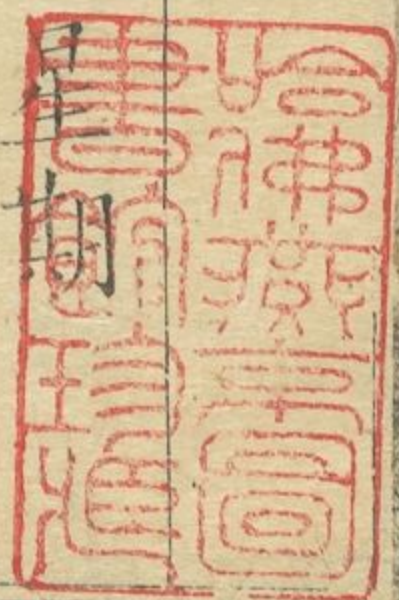 哈佛燕京圖
書館珍藏
星期